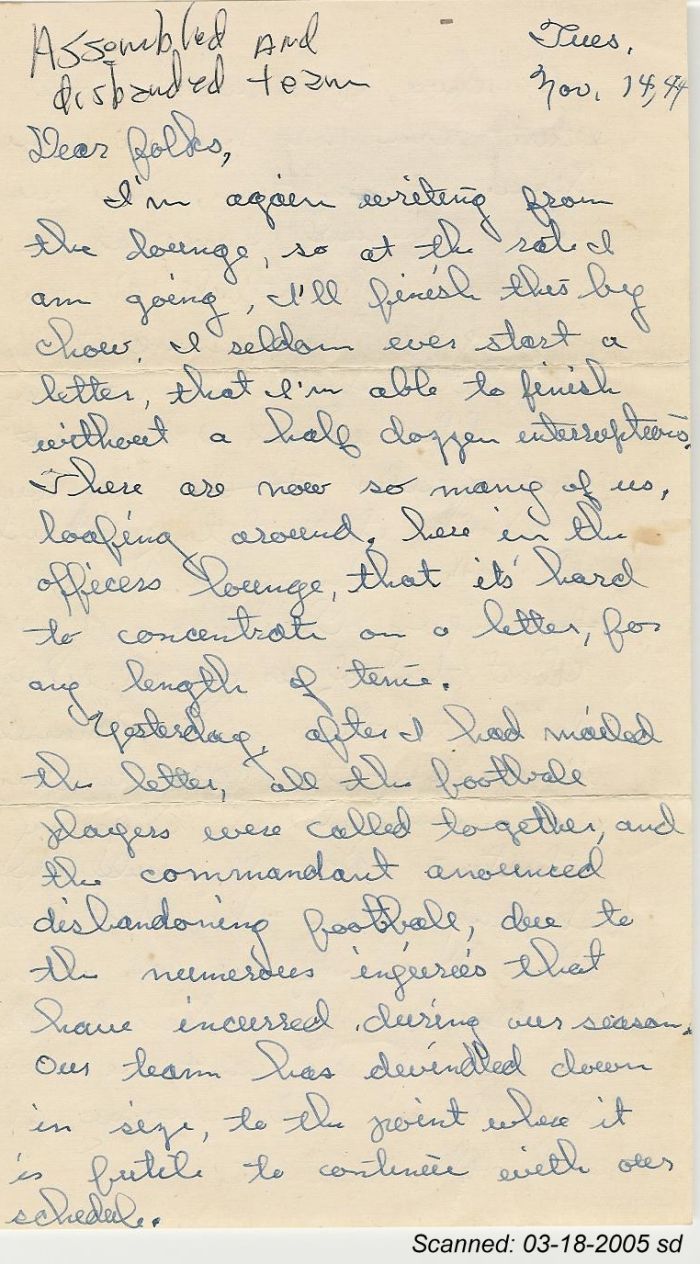 Assembled and
disbanded team
Tues,
Nov. 14, 44
Dear folks,
I'm again writing from
the lounge, so at the rate I
am going, I'll finish this by
chow. I seldom ever start a
letter, that I'm able to finish
without a half dozzen interruptions.
There are now so many of us,
loafing around, here in the
officers lounge, that its' hard
to concentrate on a letter, for
any length of time.
Yesterday, after I had mailed
the letter, all the football
players were called together, and
the commandant anounced
disbandoning football, due to
the numerous injuries that
have incurred during our season.
Our team has dwindled down
in size, to the point where it
is futile to continue with our
schedule.
Scanned: 03-18-2005 sd